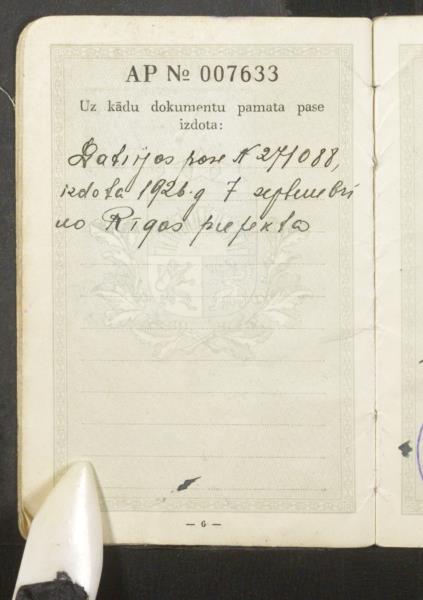 AP № 007633
Uz kādu dokumentu pamata pase
izdota:
Latvijas pase N 271088,
izdota 1926.g 7 septembrī
no Rīgas prefekta
— 6 —